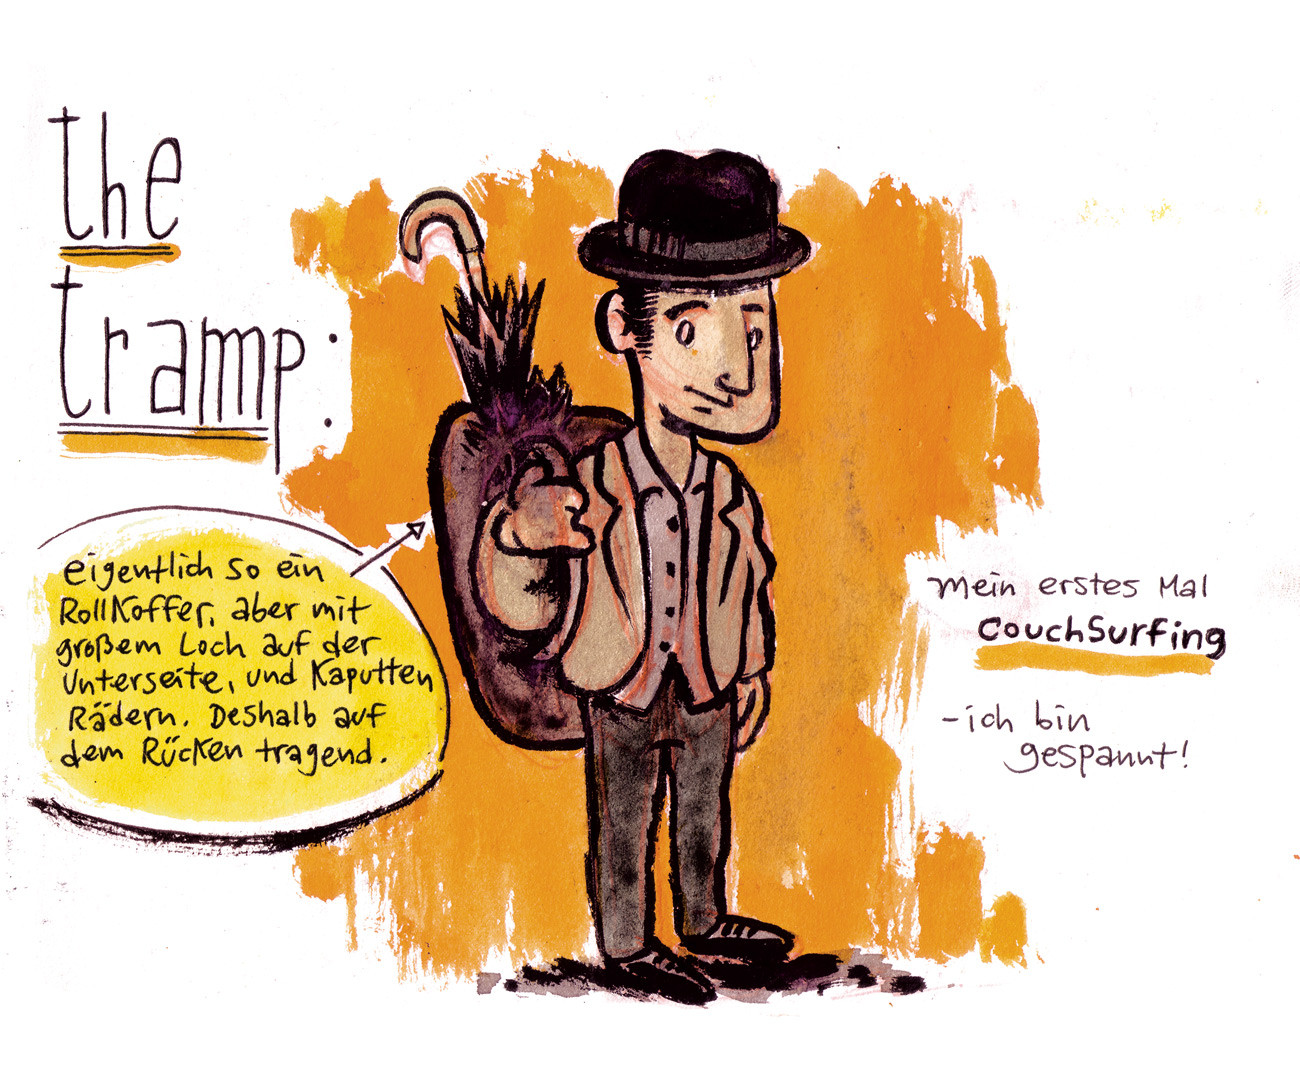 the
tramp:
eigentlich so ein
Rollkoffer, aber mit
großem Loch auf der
Unterseite, und kaputten
Rädern. Deshalb auf
dem Rücken tragend.
mein erstes Mal
CouchSurfing
-ich bin
gespannt!